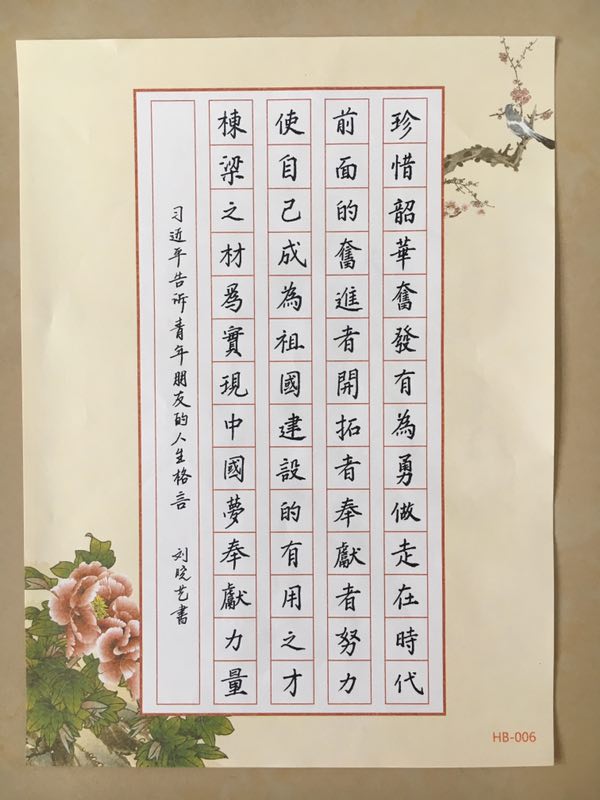 珍惜韶華奮發有為勇做走在時代
前面的奮進者開拓者奉獻者努力
使自己成為祖國建設的有用之才
棟梁之材爲實現中國夢奉獻力量
习近平告诉青年朋友的人生格言 刘院艺書
HB-006